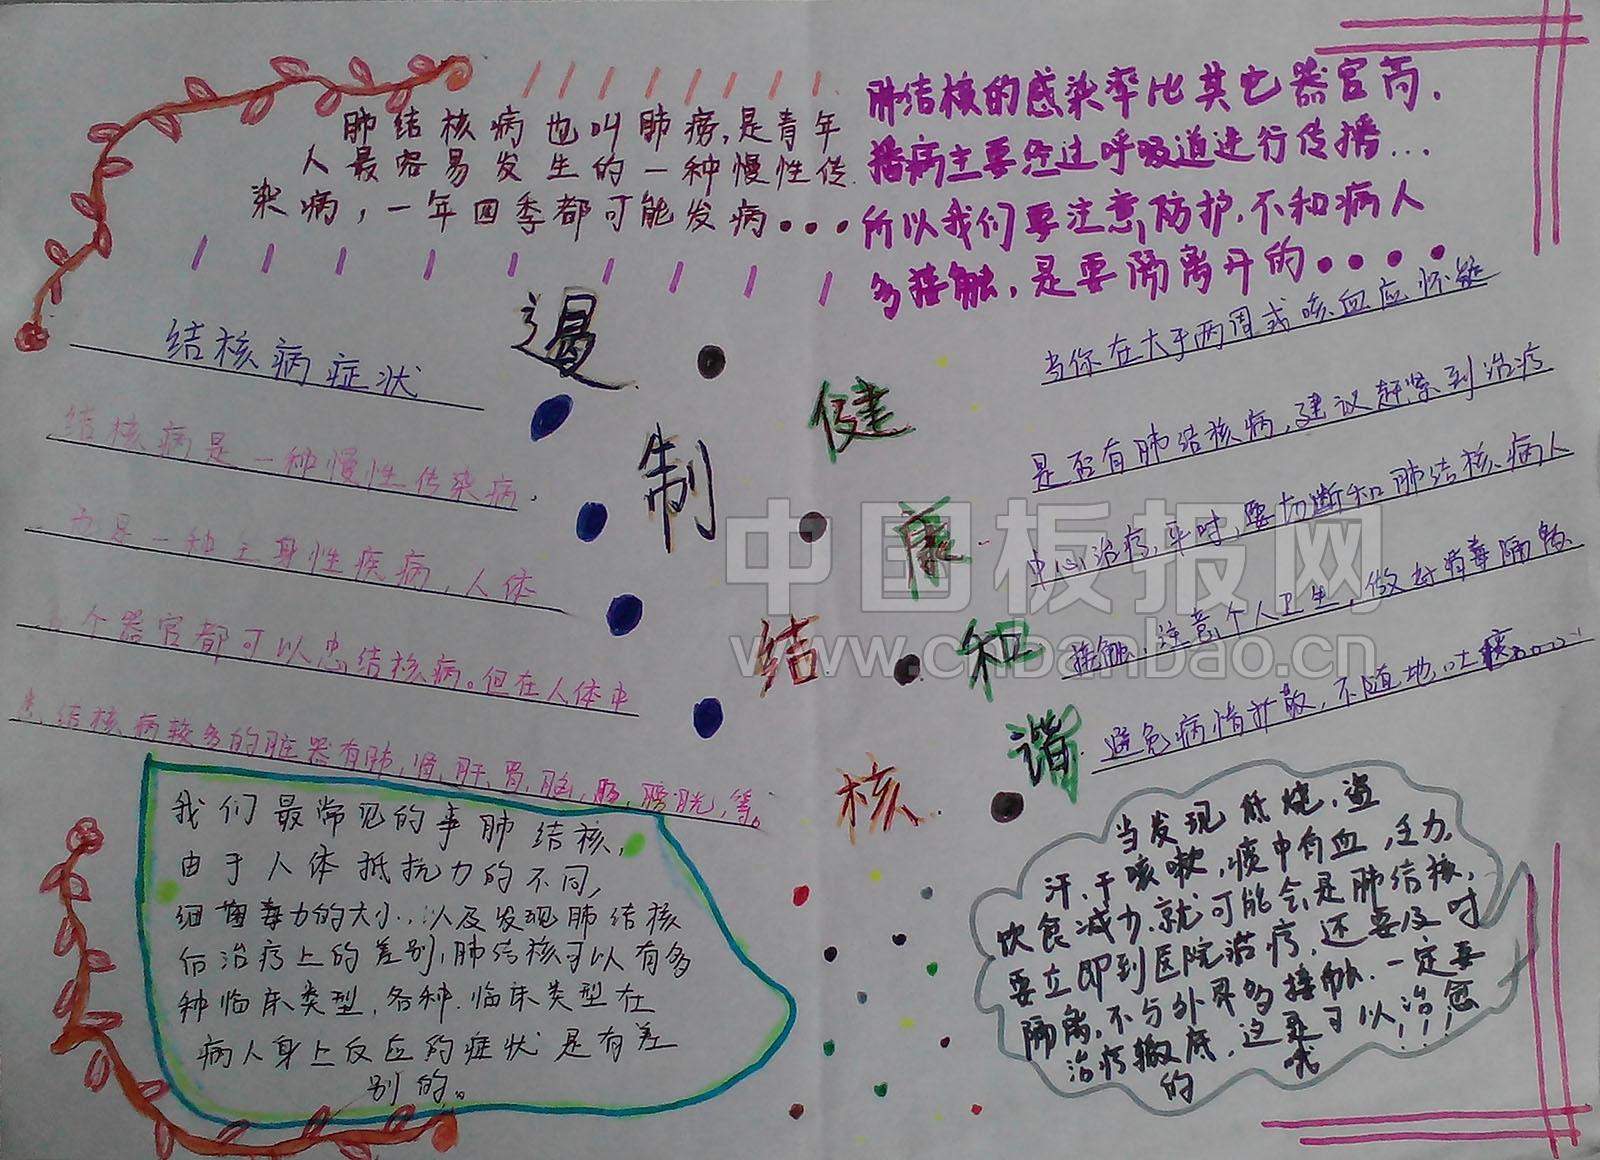 肺结核病也叫肺痨,是青年
人最容易发生的一种慢性传
染病，一年四季都可能发病...
肺结核的感染率比其它器官高.
播病主要经过呼吸道进行传播...
所以我们要注意防护.不和病人
多接触，是要隔离开的....
遏制结核
健康和谐
结核病症状
结核病是一种慢性传染病.
一种 身性疾病，人体
个器官都可以患结核病。但在人体中
结核病较多的脏器有肺，肾，肝，胃，脑，肠，膀胱，等。
当你在大于两周或咳血应怀疑
是否有肺结核病,建议赶紧到治疗
中心治疗,平时，要切断和肺结核病人
接触，注意个人卫生，做好消毒隔离
避免病情扩散，不随地吐痰
我们最常见的事肺结核，
由于人体抵抗力的不同，
细菌毒力的大小，以及发现肺结核
后治疗上的差别,肺结核可以有多
种临床类型,各种.临床类型在
病人身上反应的症状是有差
别的。
当发现低烧，盗
汗，干咳嗽，痰中有血，乏力，
饮食减少.就可能会是肺结核，
要立即到医院治疗，还要及时
隔离，不与外界多接触.一定要
治疗彻底.这是可以治愈
的 哦!!!
中国板报网
www.cnbanbao.cn